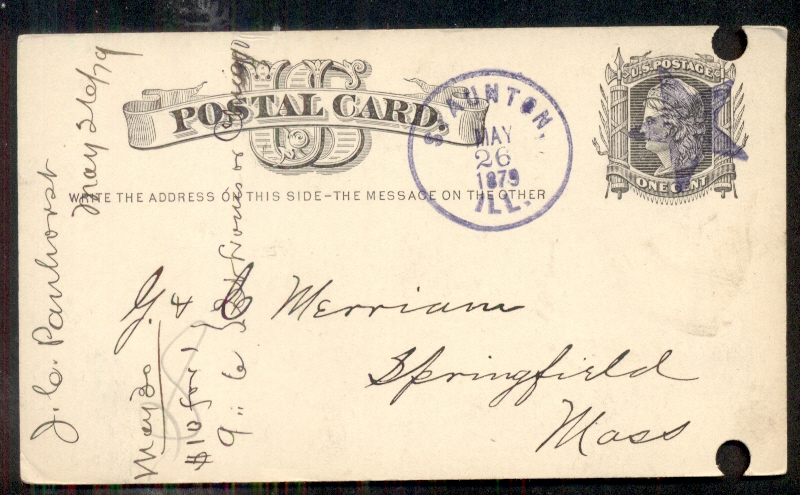 U.S. POSTAGE
ONE CENT
US
POSTAL CARD.
WRITE THE ADDRESS ON THIS SIDE-THE MESSAGE ON THE OTHER
STAUNTON,
MAY
26
1879
ILL.
G. & C Merriam
Springfield
Mass
J. C. Panhorst
May 26/79
May 30
$10 for 1
9 .. 6 } St Louis or Chicago